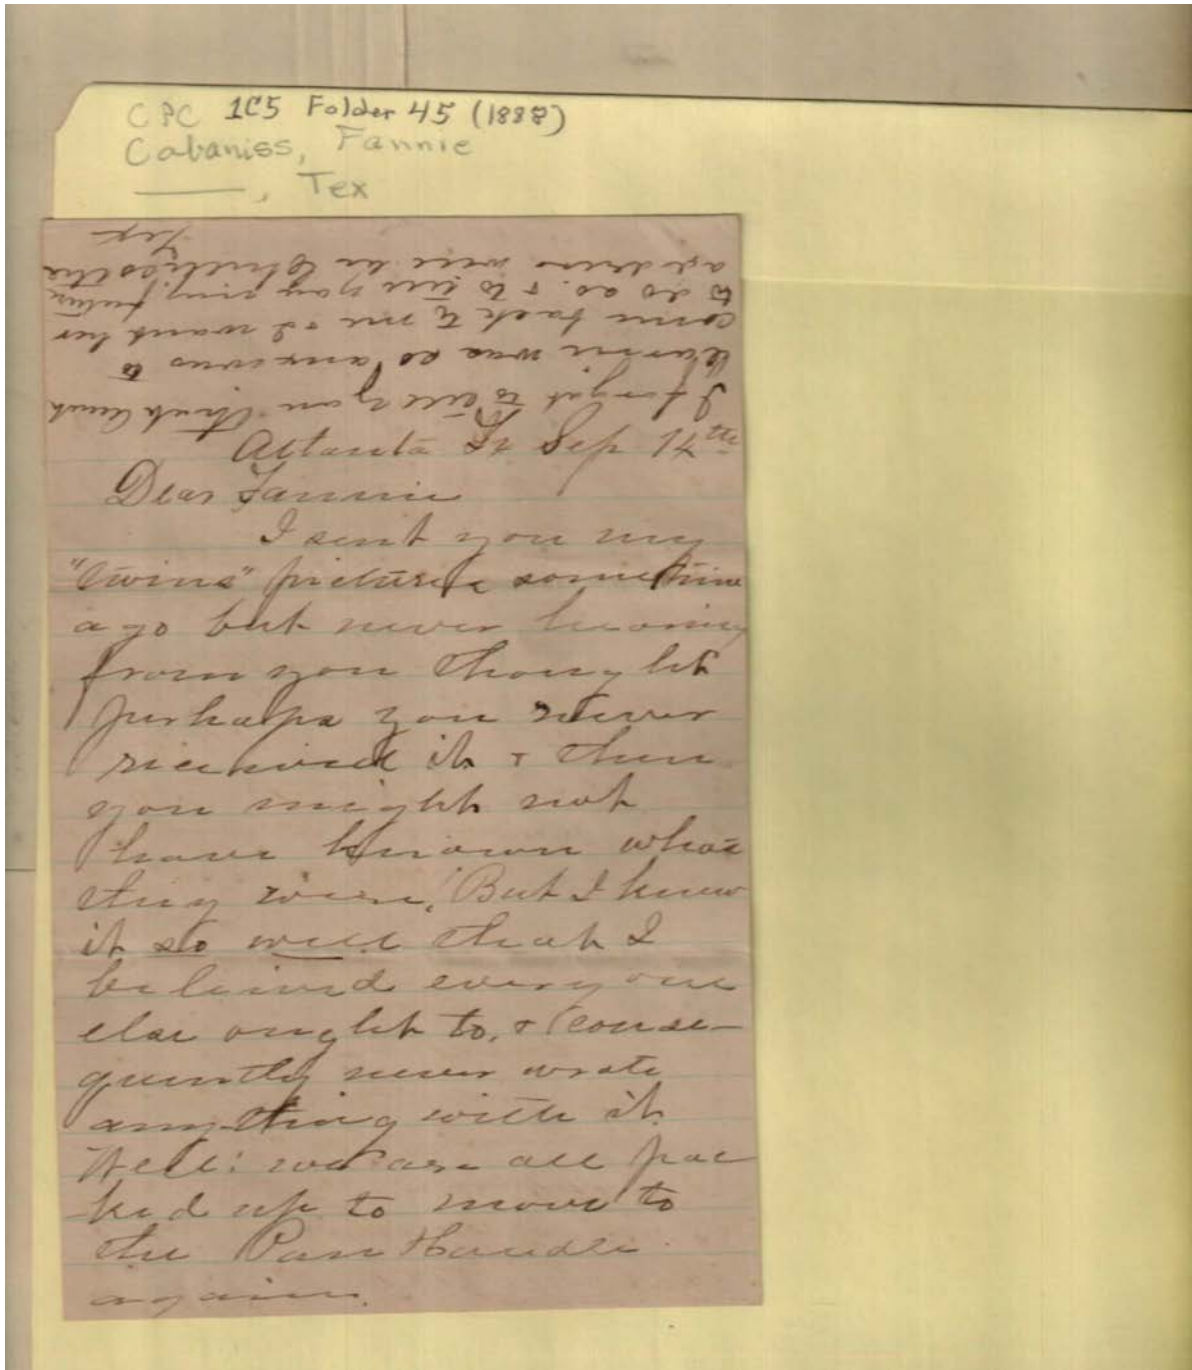 CPC 1C5 Folder 45 (1888)
Cabaniss, Fannie
, Tex
I forgot to tell you that
was so anxious to
come back to me & I want her
to do so. & to tell you my future
address will be Childress
Tex
Atlanta Sep
Dear Fannie
I sent you my
"twins" picture sometime
ago but never hearing
from you thought
perhaps you never
received it & then
you might not
have known who
they were! But I knew
it so well that I
beleived every one
else ought to, & conse-
quently never wrote
anything with it
Well: we are all pac
ked up to move to
the Pan Handle
again.